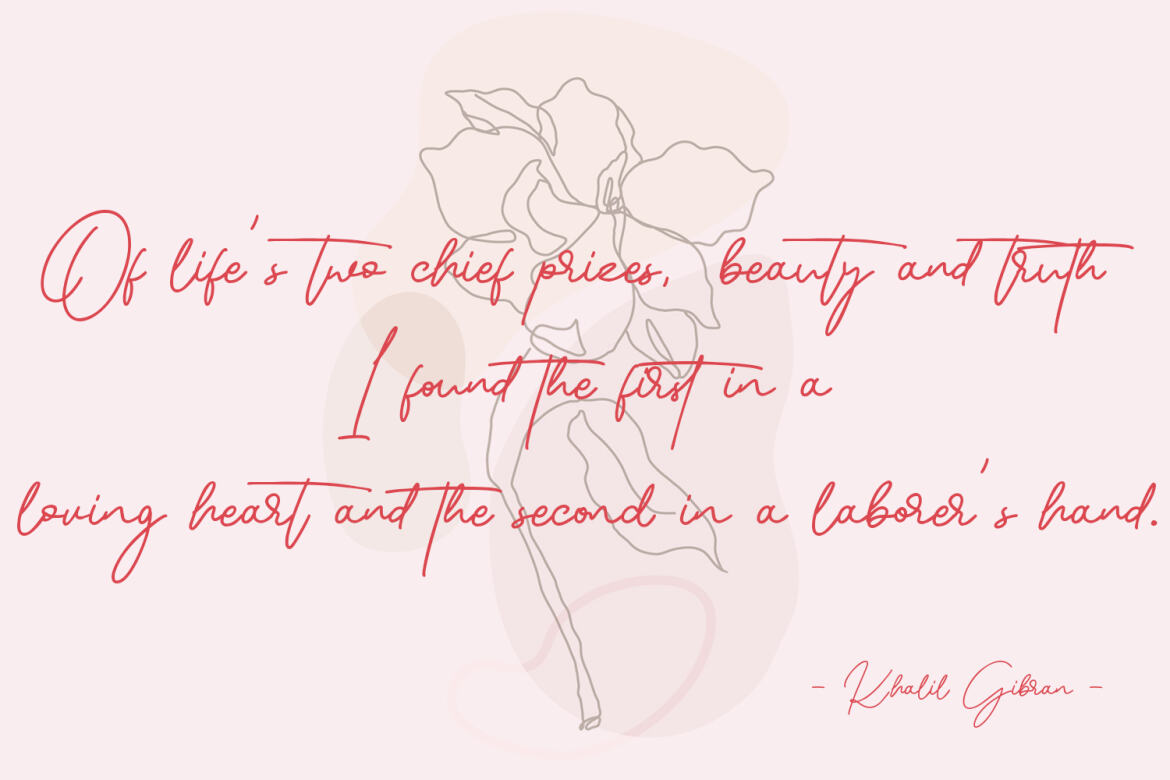 Of life's two chief prizes, beauty and truth
I found the first in a
loving heart and the second in a laborer's hand.
- Khalil Gibran -